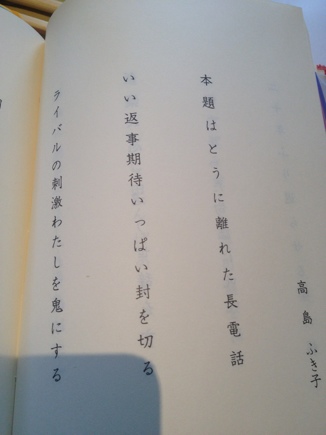 高島ふき子
本題はとうに離れた長電話
いい返事期待いっぱい封を切る
ライバルの刺激わたしを鬼にする